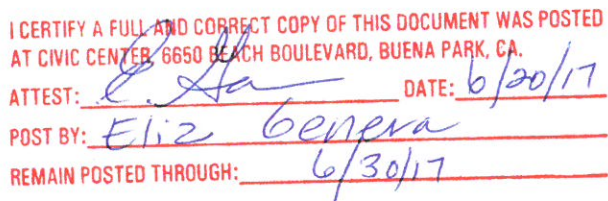 I CERTIFY A FULL AND CORRECT COPY OF THIS DOCUMENT WAS POSTED
AT CIVIC CENTER, 6650 BEACH BOULEVARD, BUENA PARK, CA.
ATTEST: DATE: 6/20/17
POST BY: Eliz Geneva
REMAIN POSTED THROUGH: 6/30/17